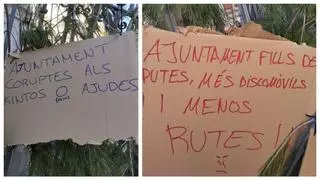 AJUNTAMENT
CORUPTES ALS
KINTOS 0 AJUDES
AJUNTAMENT FILLS DE
PUTES, MÉS DISCOMÒVILS
I MENOS
RUTES!